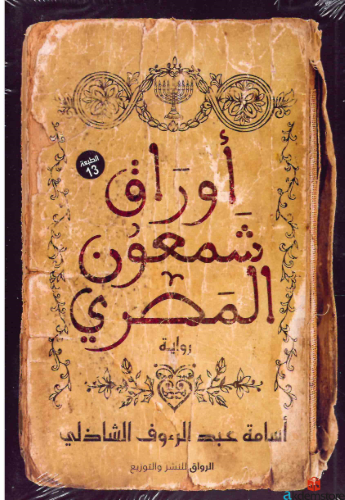 الطبعة
13
أَورَاق
شَمعُون
المَصرِي
رواية
أسامة عبد الرءوف الشاذلي
الرواق للنشر والتوزيع